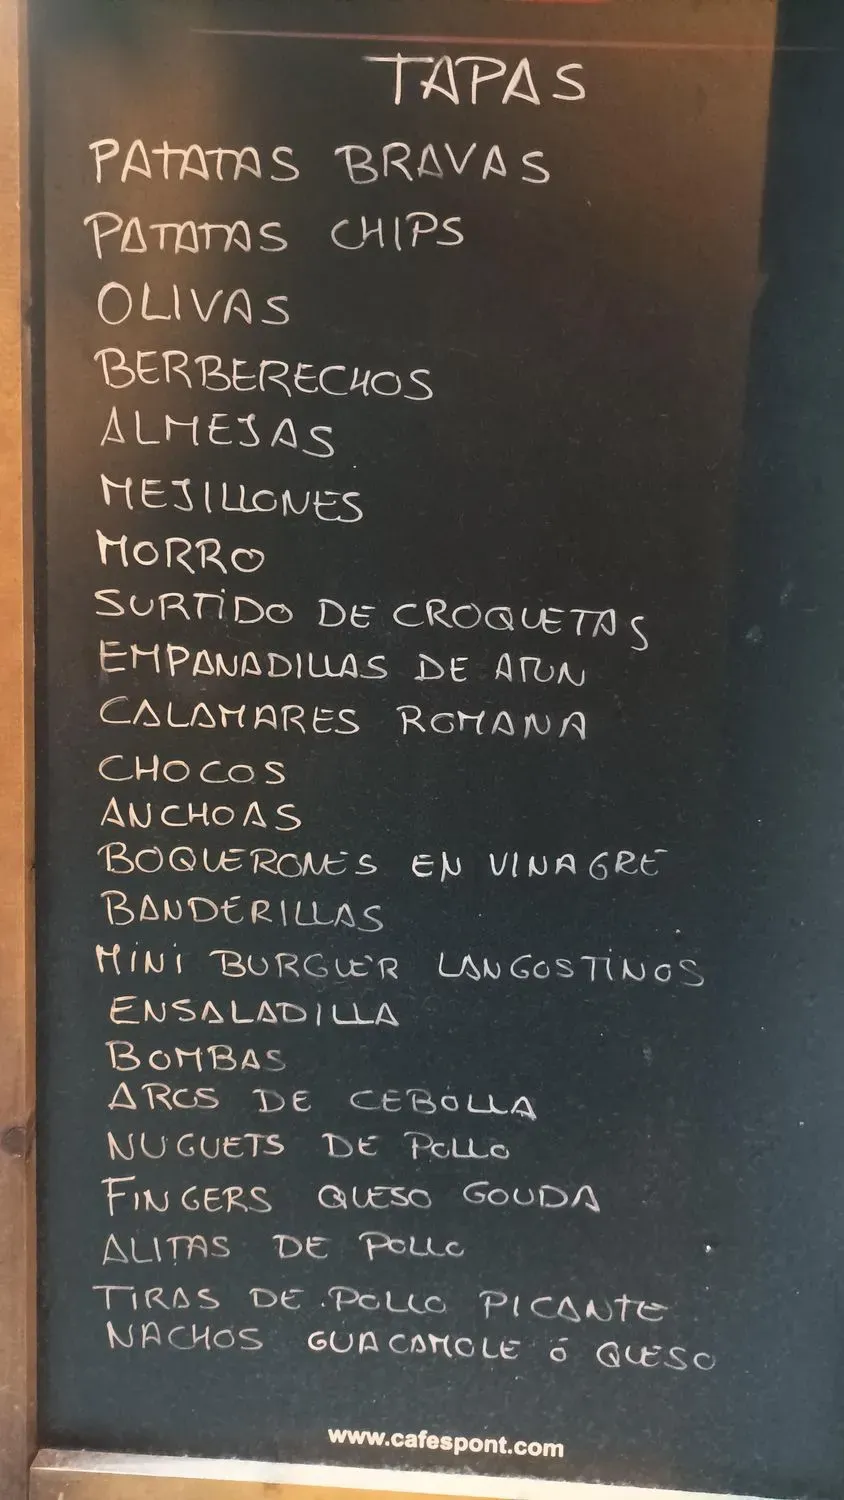 TAPAS
PATATAS BRAVAS
PATATAS CHIPS
OLIVAS
BERBERECHOS
ALMEJAS
MEJILLONES
MORRO
SURTIDO DE CROQUETAS
EMPANADILLAS DE ATUN
CALAMARES ROMANA
CHOCOS
ANCHOAS
BOQUERONES EN VINAGRE
BANDERILLAS
MINI BURGUER LANGOSTINOS
ENSALADILLA
BOMBAS
AROS DE CEBOLLA
NUGUETS DE POLLO
FINGERS QUESO GOUDA
ALITAS DE POLLO
TIRAS DE POLLO PICANTE
NACHOS GUACAMOLE Ó QUESO
www.cafespont.com